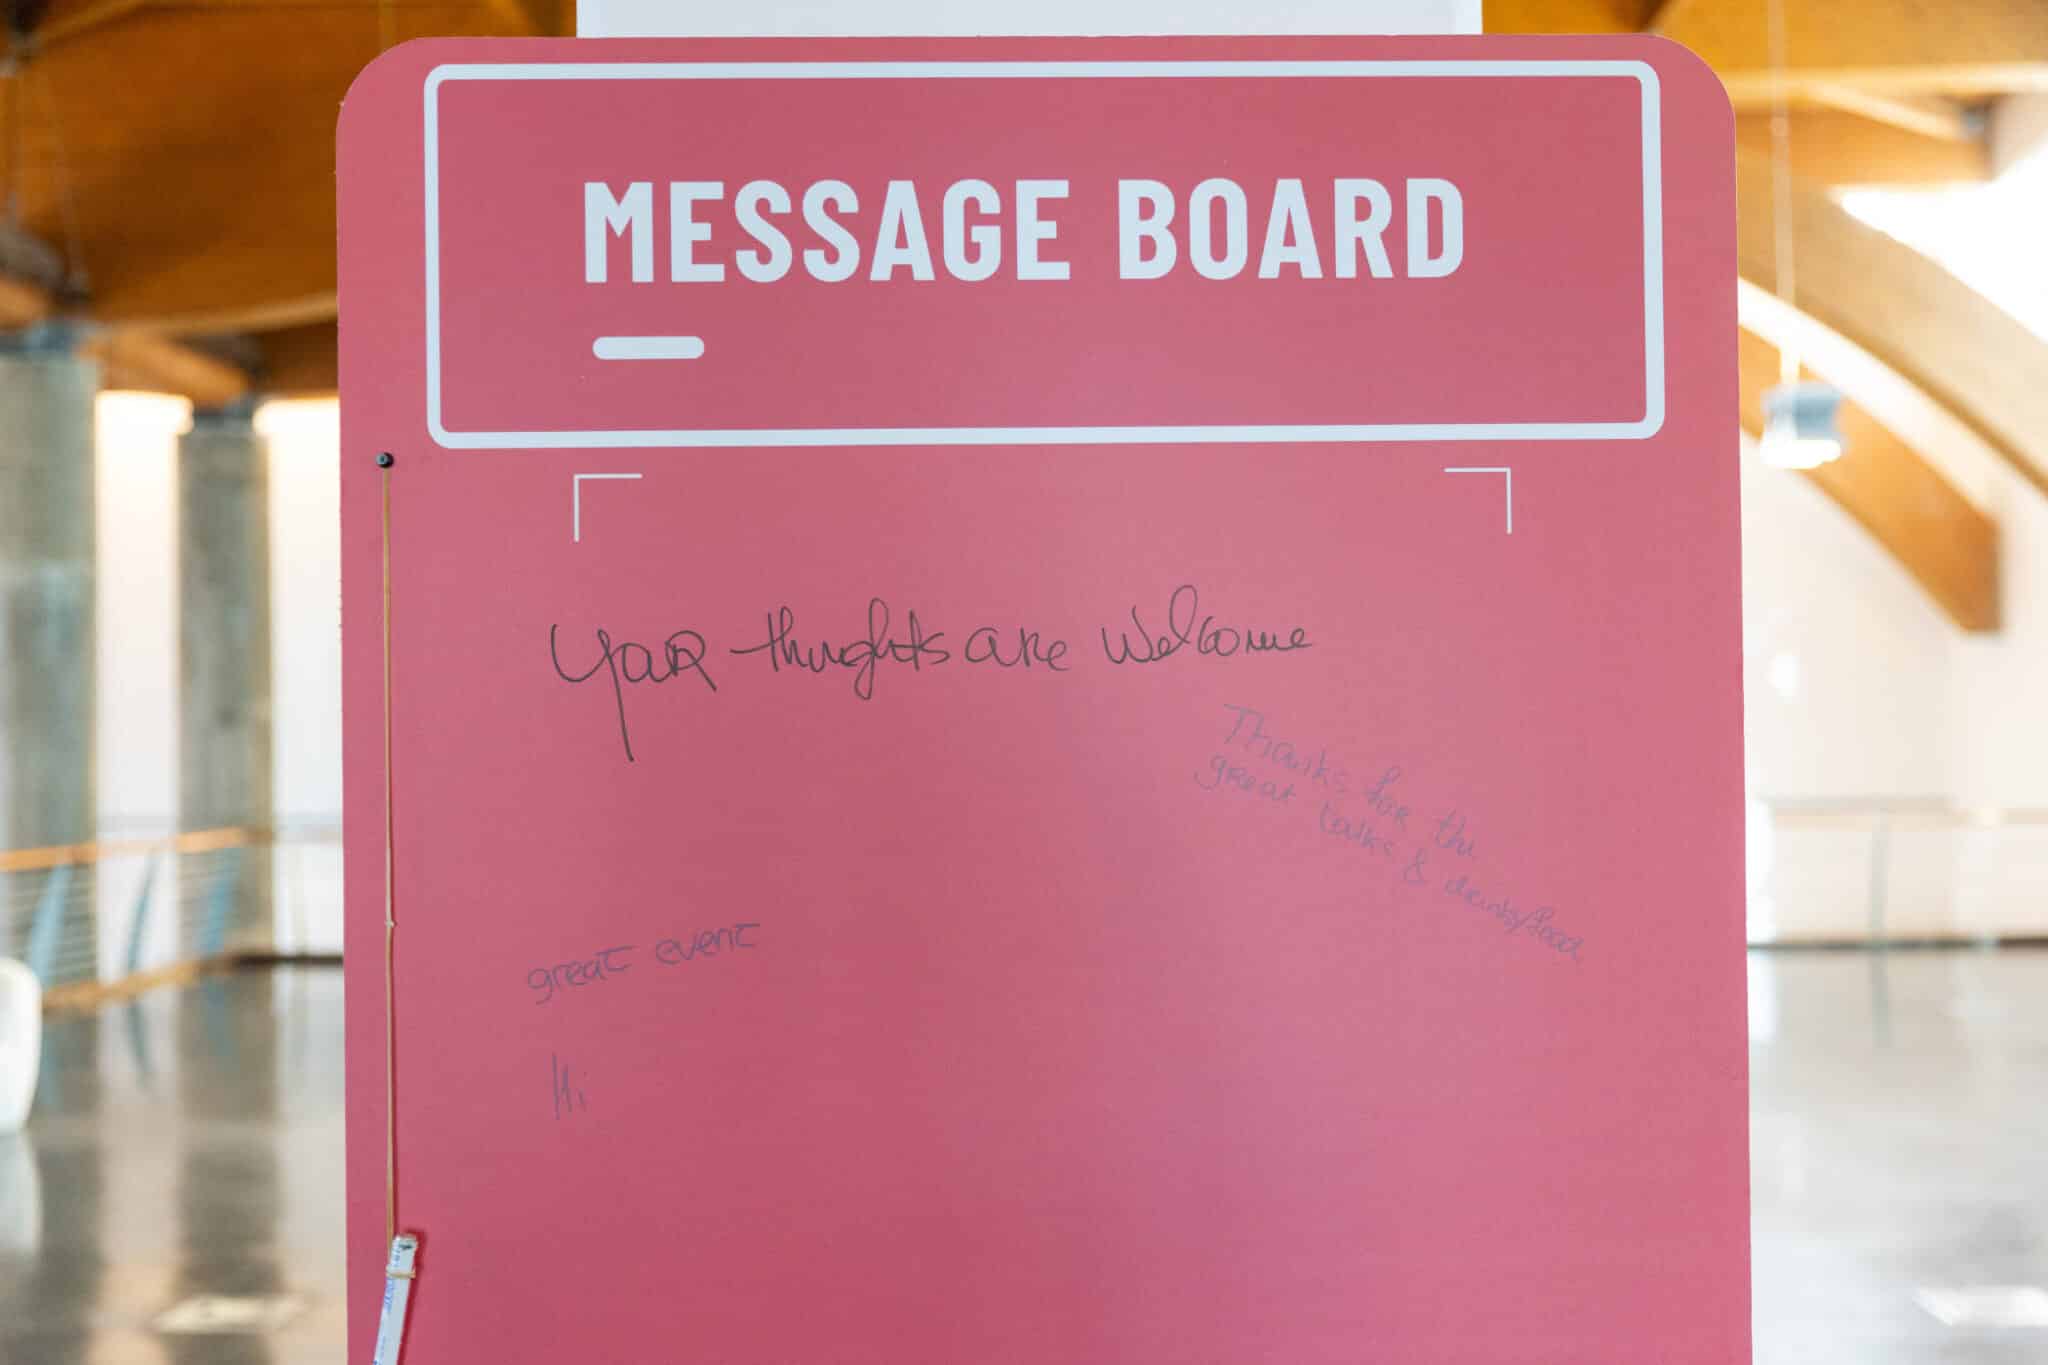 MESSAGE BOARD
Your thoughts are welcome
Thanks for the
great talks & drinks/food
great event
Hi